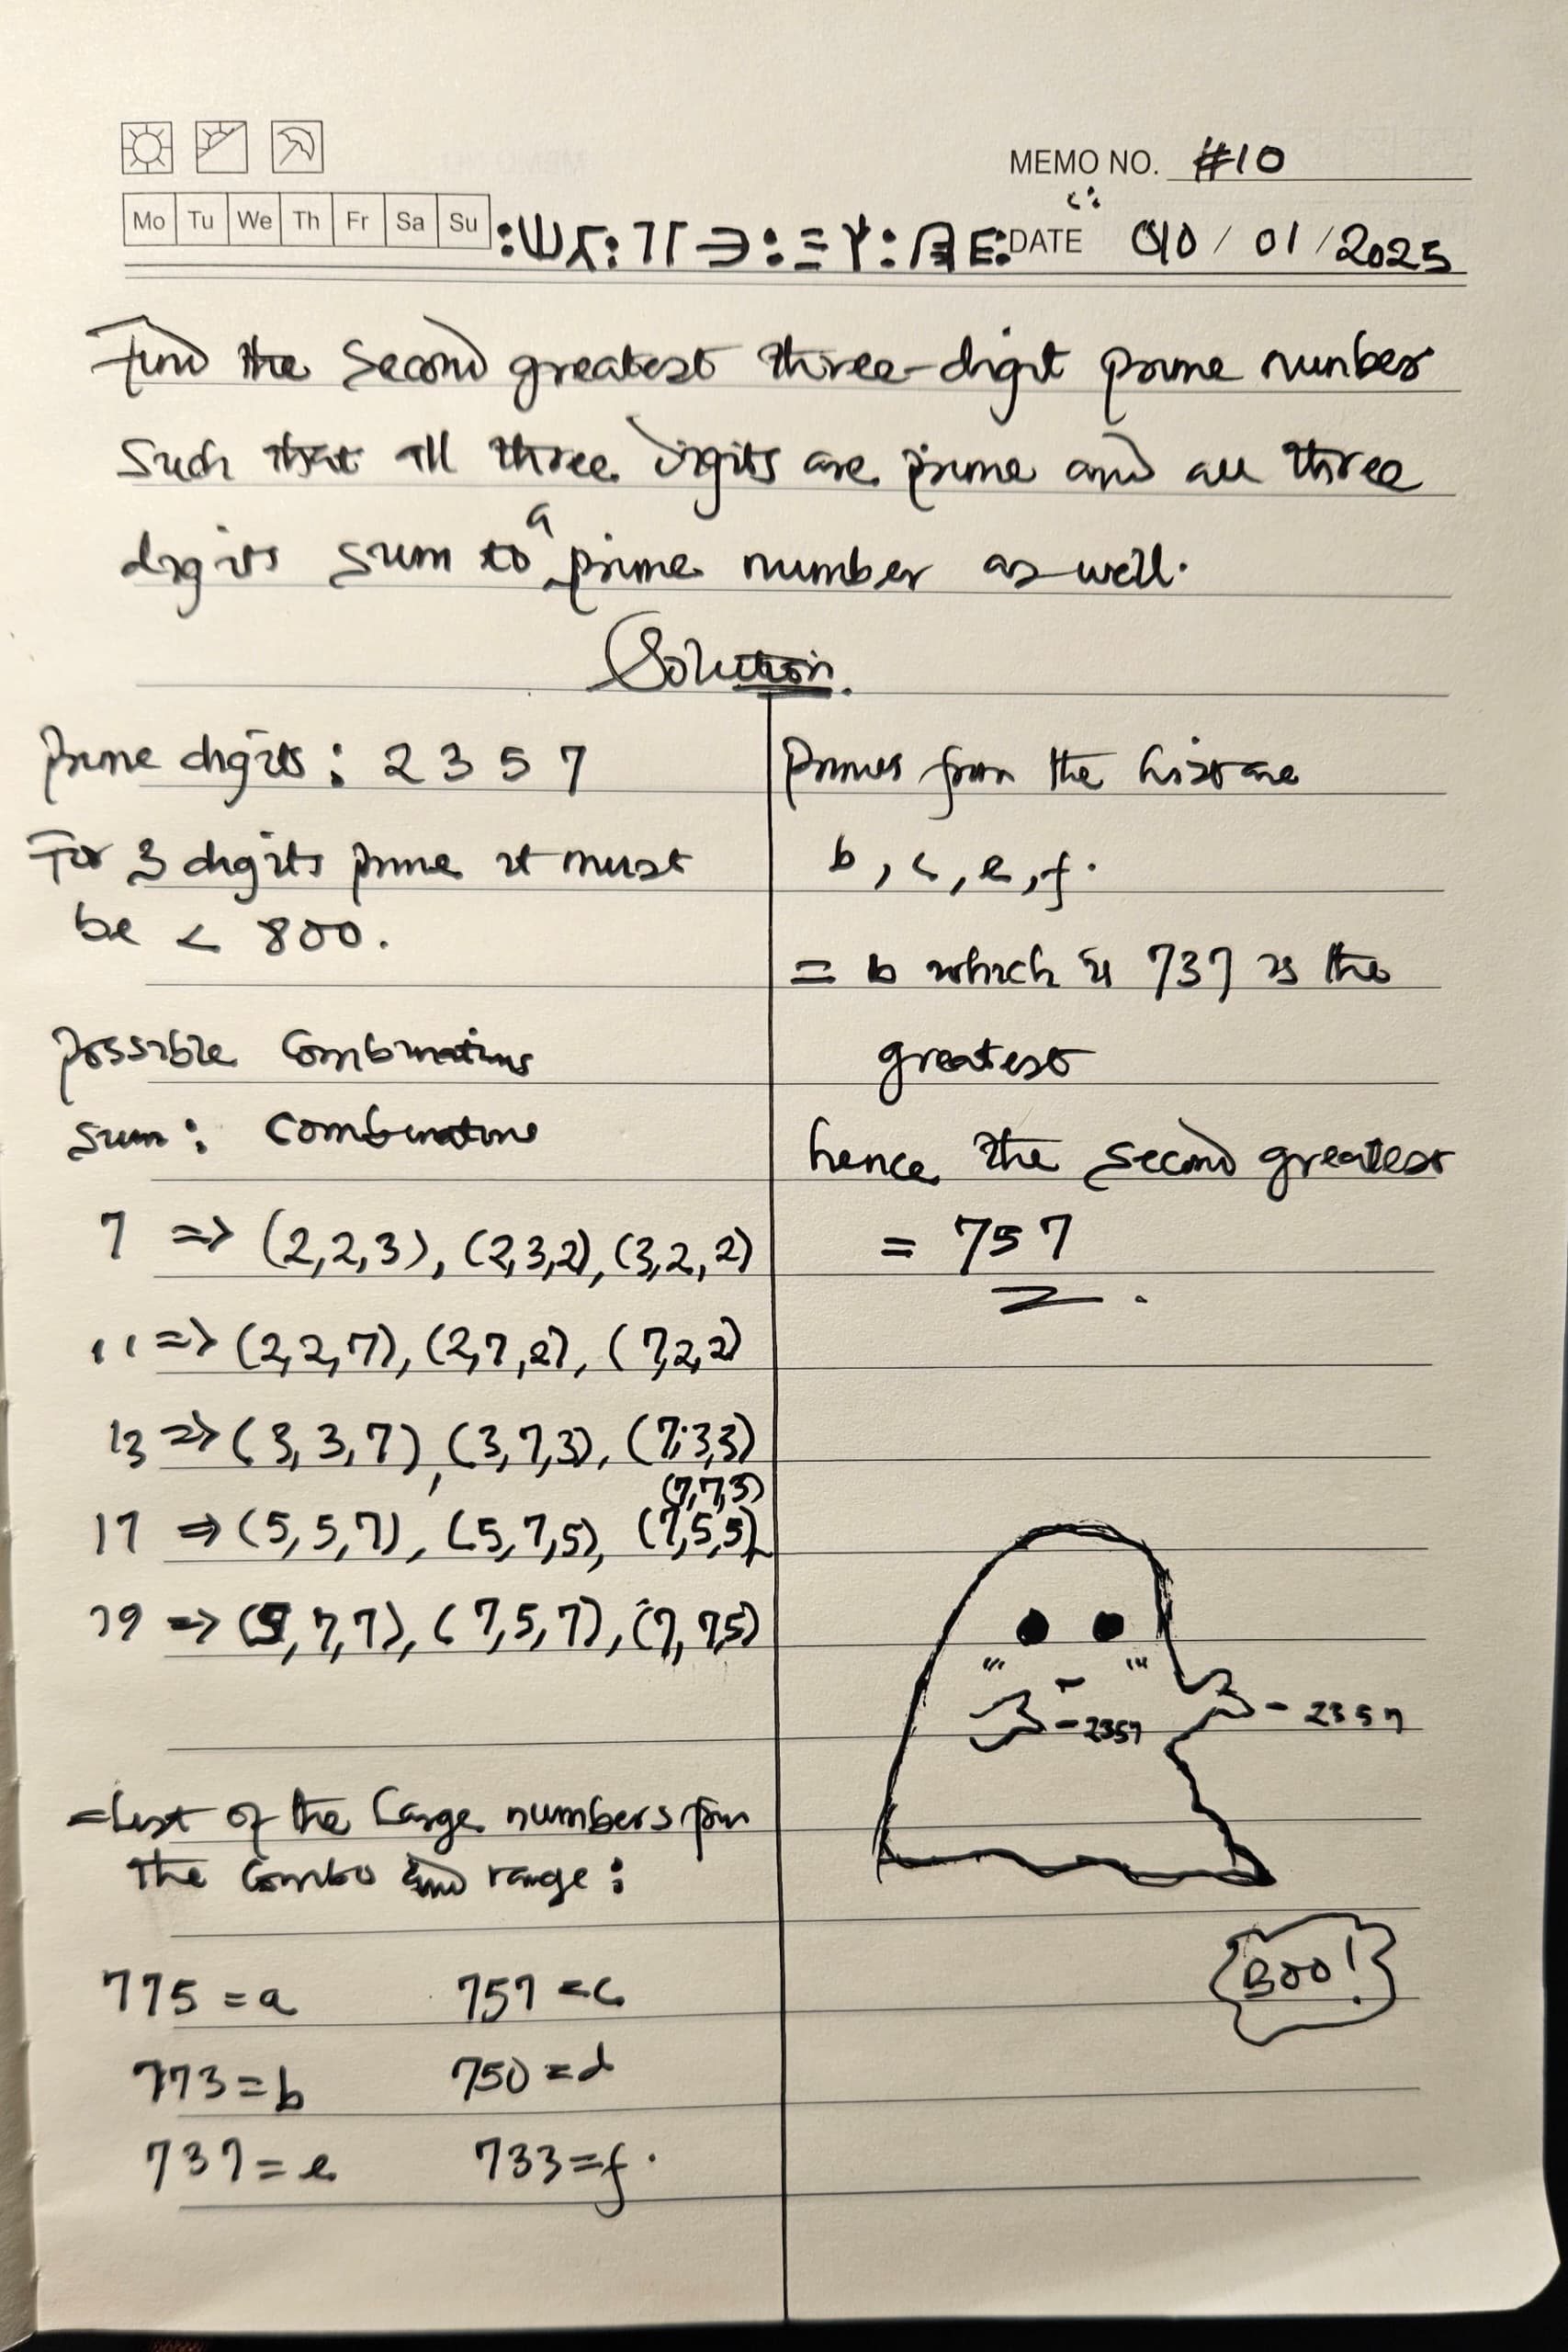 MEMO NO. #10
Mo Tu We Th Fr Sa Su
DATE 010 / 01 / 2025
Find the Second greatest three-digit prime number
Such that all three digits are prime and all three
digits sum to a prime number as well.
Solution.
Prime digits: 2 3 5 7
For 3 digits prime it must
be < 800.
possible Combinations
sum: Combinations
7 => (2,2,3), (2,3,2), (3,2,2)
11 => (2,2,7), (2,7,2), (7,2,2)
13 => (3,3,7), (3,7,3), (7,3,3)
(7,7,3)
17 => (5,5,7), (5,7,5), (7,5,5)
19 => (5,7,7), (7,5,7), (7,7,5)
=List of the Large numbers from
the Combo and range:
775 = a 757 = c
773 = b 750 = d
737 = e 733 = f.
Primes from the list are
b, c, e, f.
= b which is 737 is the
greatest
hence the second greatest
= 757
- 2357
- 2357
BOO!